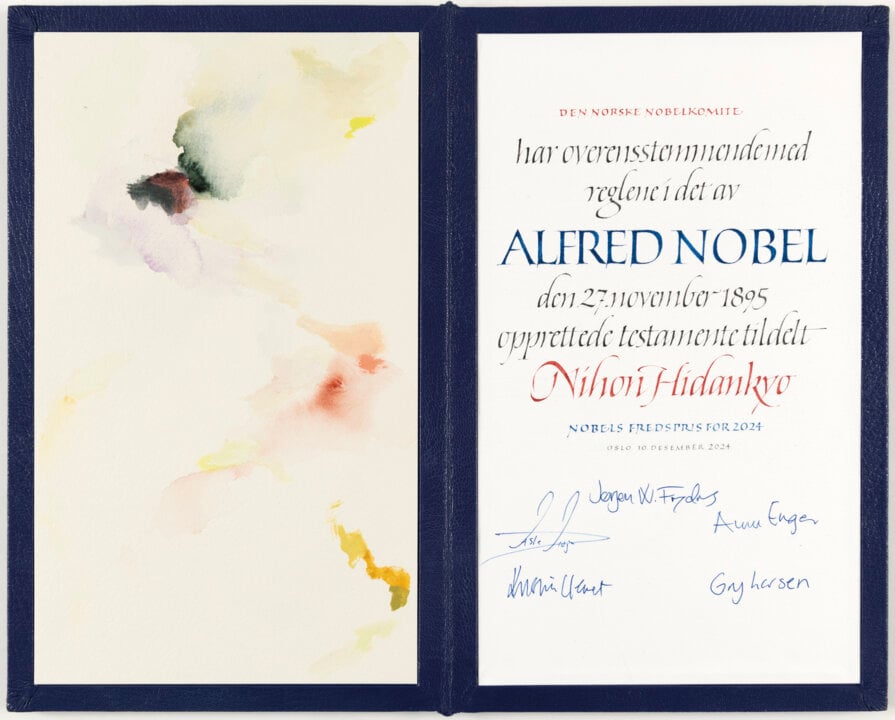 DEN NORSKE NOBELKOMITE
har overensstemmende med
reglene i det av
ALFRED NOBEL
den 27. november 1895
opprettede testamente tildelt
Nihon Hidankyo
NOBELS FREDSPRIS FOR 2024
OSLO, 10. DESEMBER 2024
Jørgen W. Frydnes
Anne Enger
Asle Toje
Kristin Clemet
Gry Larsen